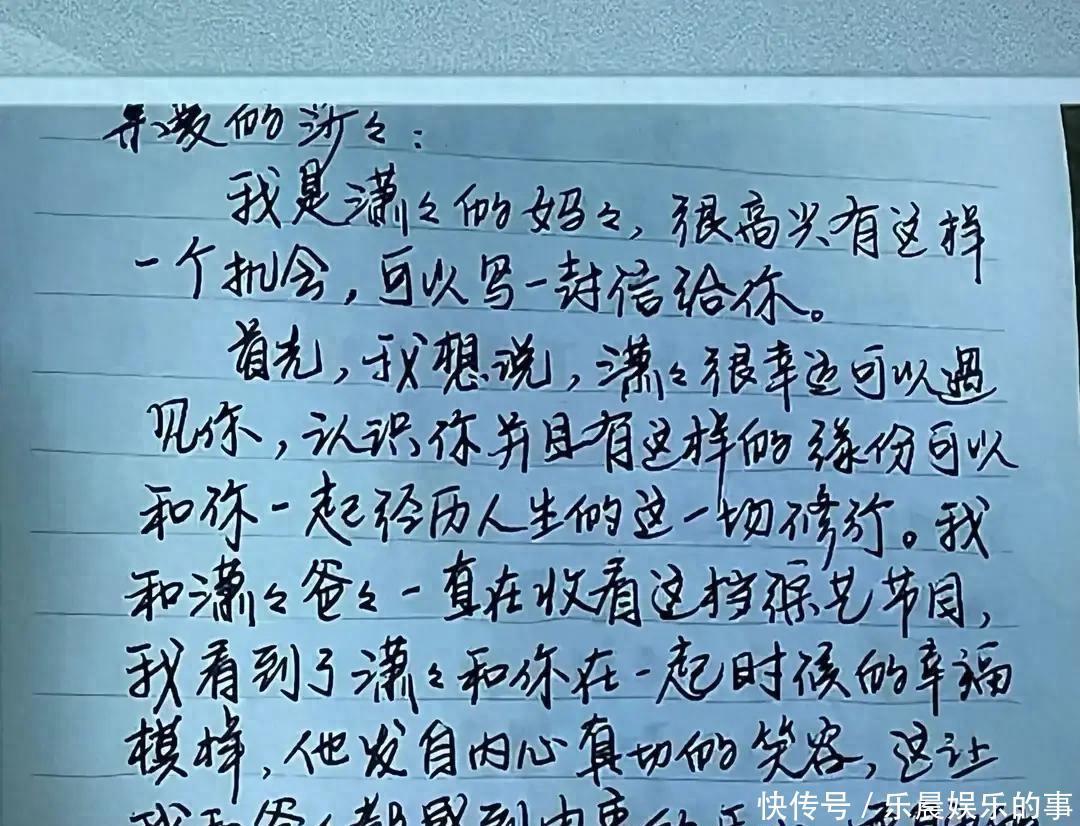 亲爱的莎々：
我是潇々的妈々，很高兴有这样
一个机会，可以写一封信给你。
首先，我想说，潇々很幸运可以遇
见你，认识你并且有这样的缘份可以
和你一起经历人生的这一切修行。我
和潇々爸々一直在收看这档综艺节目，
我看到了潇々和你在一起时候的幸福
模样，他发自内心真切的笑容，这让
我和爸々都感到由衷的
快传号／乐晨娱乐的事